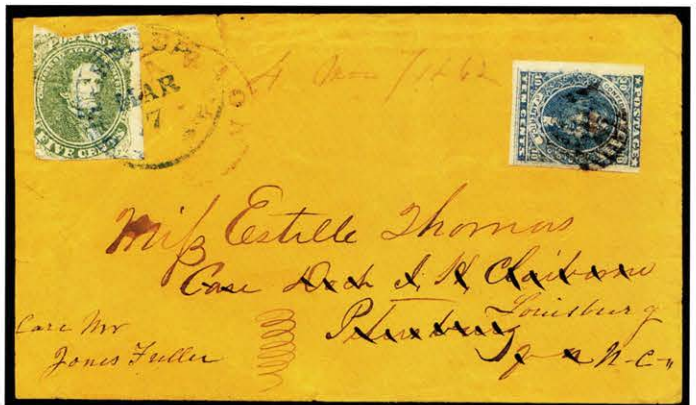 FIVE CENTS
MAR
7
POSTAGE
TEN CENTS
10
4 Mar 7/1862
Miss Estelle Thomas
Care Doct J. H. Claiborne
Petersburg
Louisburg
N-C-
Care Mr
Jones Fuller